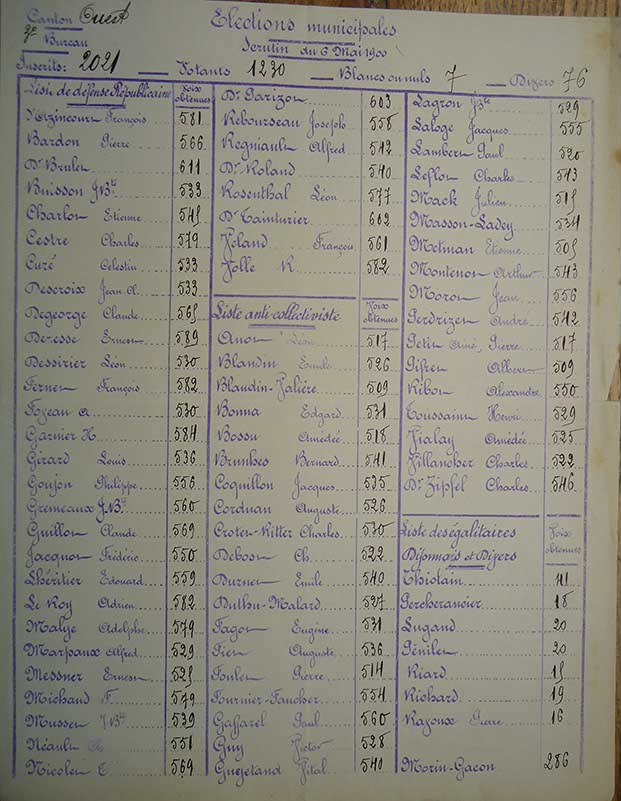 Canton Ouest
2e Bureau
Elections municipales
Scrutin du 6 Mai 1900
Inscrits: 2021 Votants 1230 Blancs ou nuls 7 Divers 76
Liste de défense Républicaine Voix obtenues
d'Azincourt François 581
Bardon Pierre 566
Dr Brulet 611
Buisson J.Bte 533
Charlot Etienne 545
Cestre Charles 579
Curé Celestin 533
Descroix Jean A. 533
Degeorge Claude 565
Deresse Ernest 589
Dessirier Léon 530
Fernet François 582
Fojeau A 530
Garnier H. 584
Girard Louis 536
Goujon Philippe 556
Gremeaux J.Bte 560
Guillon Claude 569
Jacquot Frédéric 550
Lhéritier Edouard 559
Le Roy Adrien 582
Malye Adolphe 579
Marpaux Alfred 529
Messner Ernest 525
Michaud F. 549
Musset J.Bte 539
Néault 551
Nicolet E 569
Dr Parizot 603
Rebourseau Joseph 558
Regniault Alfred 542
Dr Roland 540
Rosenthal Léon 577
Dr Tainturier 602
Veland François 561
Volle R. 582
Liste anti-collectiviste Voix obtenues
Anot Léon 517
Blandin Emile 526
Blaudin-Valière 509
Bonna Edgard 531
Bossu Amédée 518
Brunhes Bernard 541
Coquillon Jacques 535
Corduan Auguste 526
Croten-Ritter Charles 530
Debost Ch. 522
Durnet Emile 540
Duthu-Malard 527
Fagot Eugène 531
Fiet Auguste 536
Foulet Pierre 514
Fournier-Faucher 554
Gaffarel Paul 560
Guy Victor 528
Guyetand Vital 540
Lagron J.Bte 529
Laloge Jacques 555
Lambert Paul 520
Leflot Charles 513
Mack Julien 515
Masson-Ladey 534
Metman Etienne 505
Montenot Arthur 543
Morot Jean 556
Perdrizet André 542
Petit Aimé, Pierre 517
Pifret Albert 509
Ribot Alexandre 550
Toussaint Henri 529
Vialay Amédée 525
Villancher Charles 522
Dr Zipfel Charles 546
Liste des égalitaires Voix obtenues
Dijonnais et Divers
Thiolain 41
Percheranoier 18
Lugand 20
Pénilet 20
Riard 15
Richard 19
Razoux Pierre 16
Morin-Gacon 286